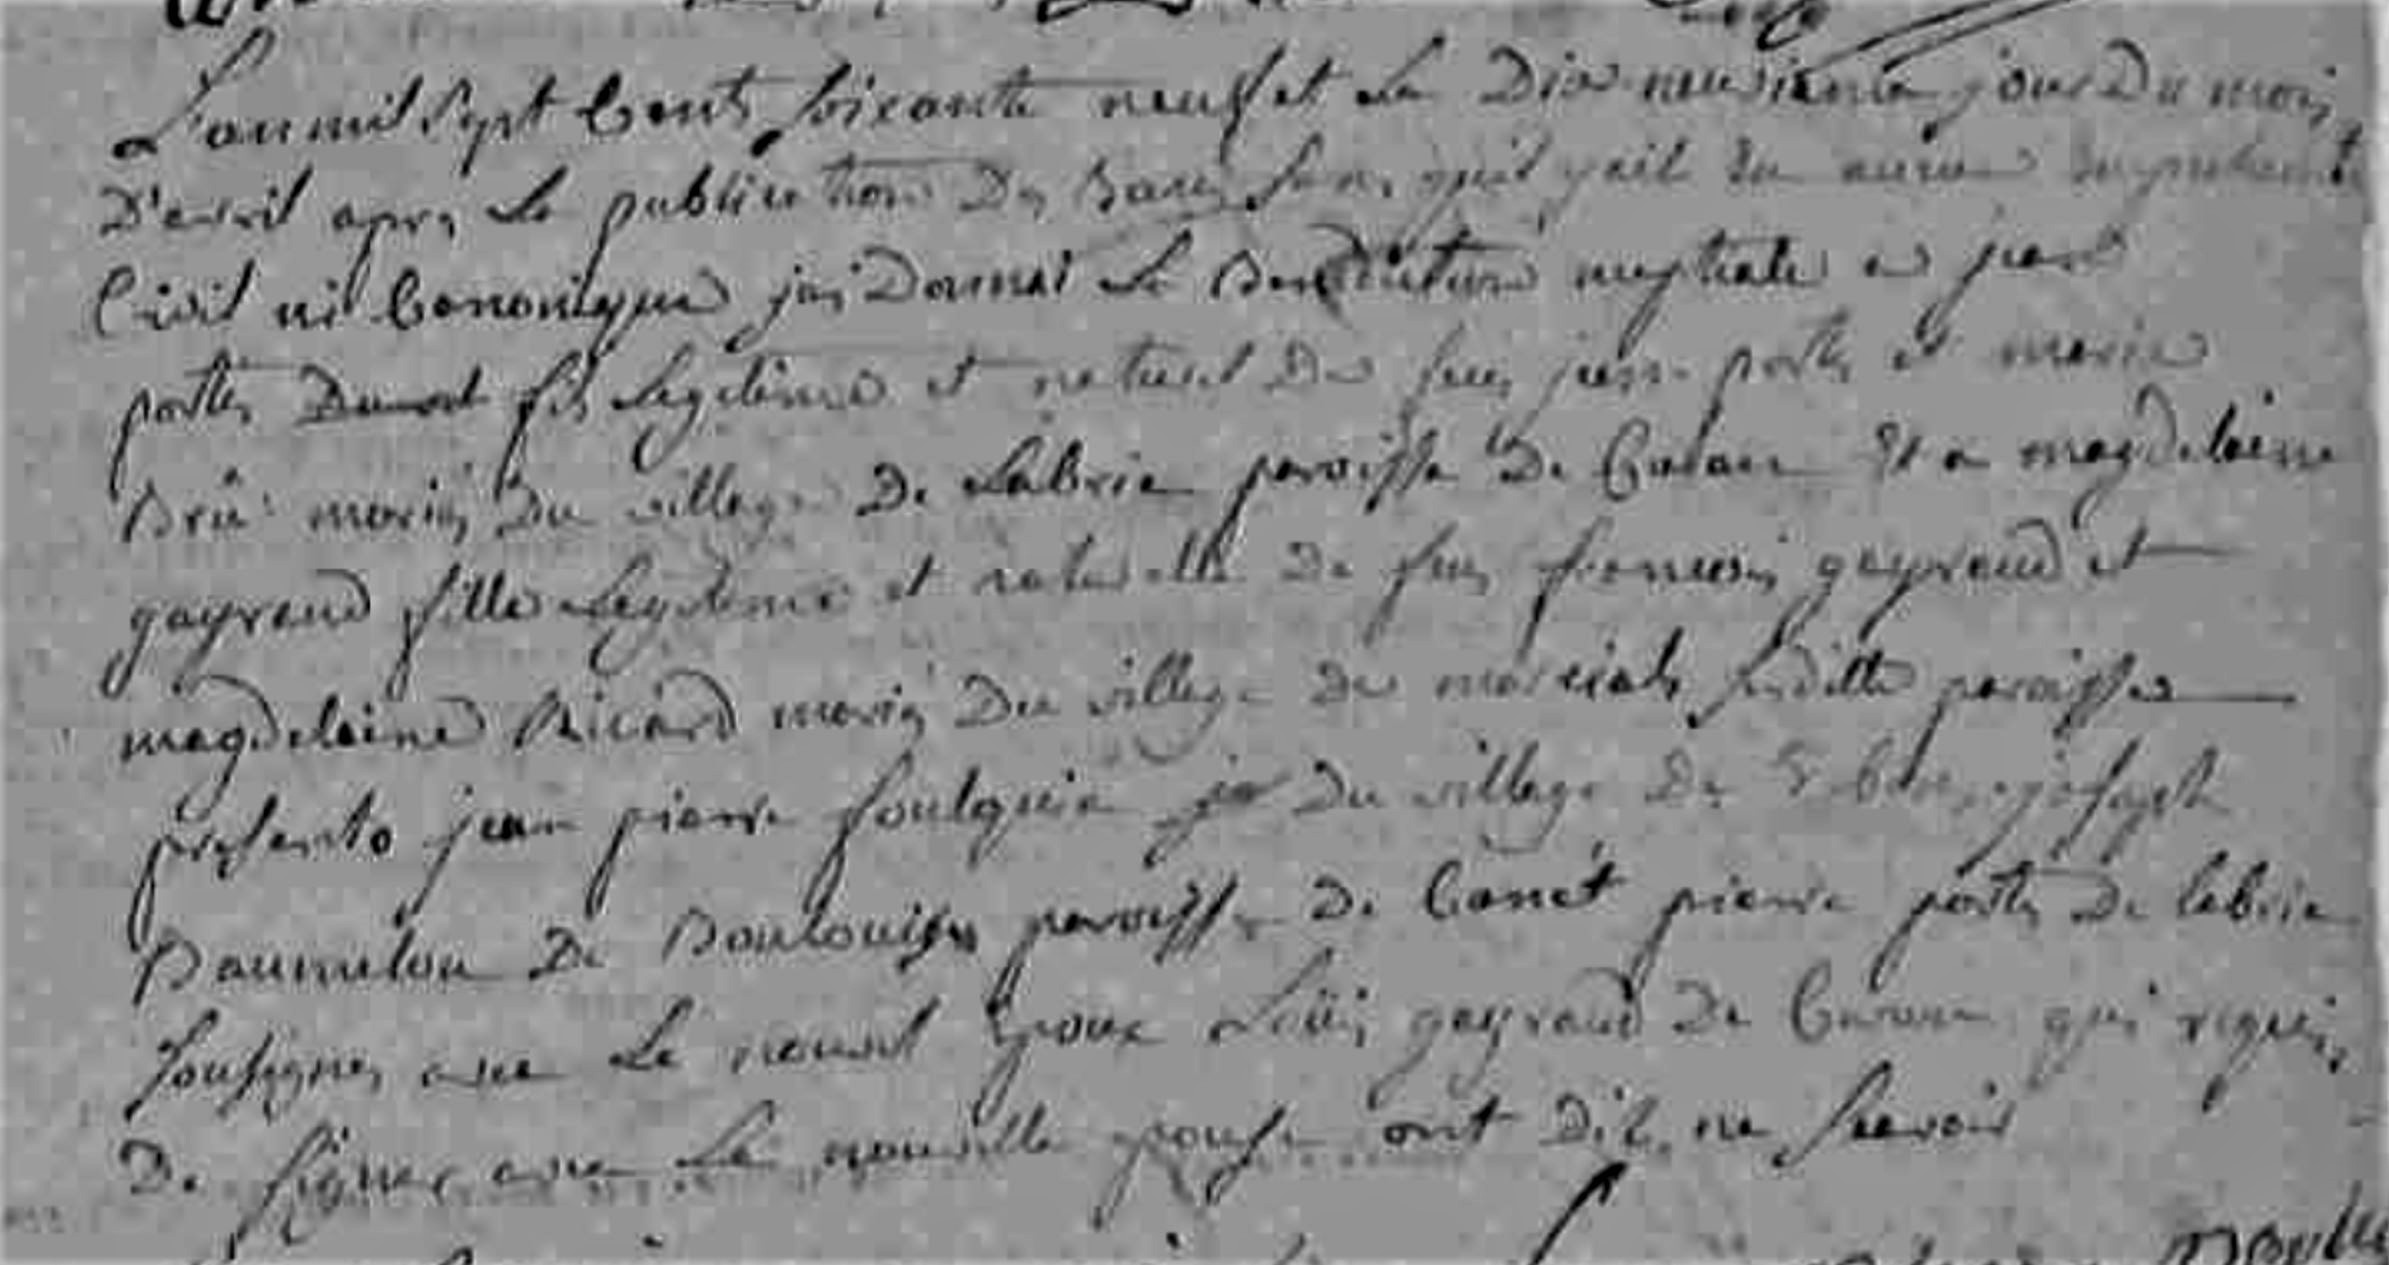 L'an mil sept cents soixante neuf et le dix neuvieme jour du mois
D'avril apres la publication des bans sans quil y ait eu aucun empechement
Civil ni Canonique jai donné la Benediction nuptiale a jean
portes fils legitime et naturel de feus jean portes et marie
Brû mariés du village de Labrie paroisse de Curan et a magdelaine
gayraud fille legitime et naturelle de feus francois gayraud et
magdelaine Ricard mariés du village de marcials susditte paroisse
presents jean pierre foulquié du village de joseph
Baumelou de Boulouis paroisse de Canet pierre portes de labrie
sousignes avec le nouvel Epoux Loüis gayraud de Curan qui requis
De signer avec la nouvelle epouse ont dit ne scavoir